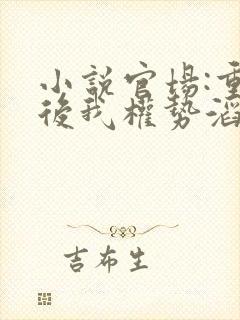 小説官場:重
後我權勢滔
吉布生